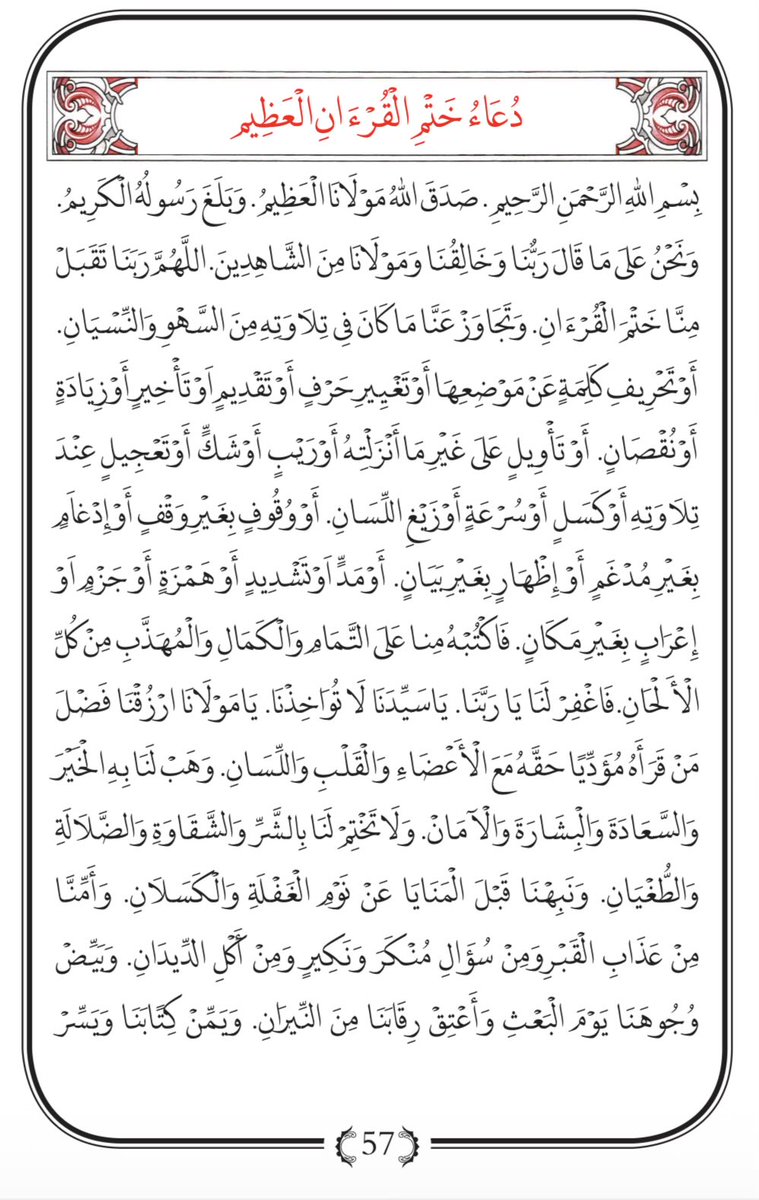 دُعَاءُ خَتْمِ الْقُرْءَانِ الْعَظِيمِ
بِسْمِ اللهِ الرَّحْمَنِ الرَّحِيمِ. صَدَقَ اللهُ مَوْلَانَا الْعَظِيمُ. وَبَلَغَ رَسُولُهُ الْكَرِيمُ.
وَنَحْنُ عَلَى مَا قَالَ رَبُّنَا وَخَالِقُنَا وَمَوْلَانَا مِنَ الشَّاهِدِينَ. اللَّهُمَّ رَبَنَا تَقَبَلْ
مِنَّا خَتْمَ الْقُرْءَانِ. وَتَجَاوَزْ عَنَّا مَا كَانَ فِي تِلَاوَتِهِ مِنَ السَّهْوِ وَالنِّسْيَانِ.
أَوْ تَحْرِيفِ كَلِمَةٍ عَنْ مَوْضِعِهَا أَوْ تَغْيِيرِ حَرْفٍ أَوْ تَقْدِيمٍ اَوْ تَأْخِيرٍ أَوْ زِيَادَةٍ
أَوْ نُقْصَانٍ. أَوْ تَأْوِيلٍ عَلَى غَيْرِ مَا أَنْزَلْتَهُ أَوْ رَيْبٍ أَوْ شَكٍّ أَوْ تَعْجِيلٍ عِنْدَ
تِلَاوَتِهِ أَوْ كَسَلٍ أَوْ سُرْعَةٍ أَوْ زَيْغِ اللِّسَانِ. أَوْ وُقُوفٍ بِغَيْرِ وَقْفٍ أَوْ إِدْغَامٍ
بِغَيْرِ مُدْغَمٍ أَوْ إِظْهَارٍ بِغَيْرِ بَيَانٍ. أَوْ مَدٍّ اَوْ تَشْدِيدٍ أَوْ هَمْزَةٍ أَوْ جَزْمٍ اَوْ
إِعْرَابٍ بِغَيْرِ مَكَانٍ. فَاكْتُبْهُ مِنا عَلَى التَّمَامِ وَالْكَمَالِ وَالْمُهَذَّبِ مِنْ كُلِّ
الْأَلْحَانِ. فَاغْفِرْ لَنَا يَا رَبَّنَا. يَا سَيِّدَنَا لَا تُوَاخِذْنَا. يَا مَوْلَانَا ارْزُقْنَا فَضْلَ
مَنْ قَرَأَهُ مُؤَدِّيًا حَقَّهُ مَعَ الْأَعْضَاءِ وَالْقَلْبِ وَاللِّسَانِ. وَهَبْ لَنَا بِهِ الْخَيْرَ
وَالسَّعَادَةَ وَالْبِشَارَةَ وَالْآمَانْ. وَلَا تَخْتِمْ لَنَا بِالشَّرِّ وَالشَّقَاوَةِ وَالضَّلَالَةِ
وَالطُّغْيَانِ. وَنَبِهْنَا قَبْلَ الْمَنَايَا عَنْ نَوْمِ الْغَفْلَةِ وَالْكَسَلَانِ. وَأَمِّنَّا
مِنْ عَذَابِ الْقَبْرِ وَمِنْ سُؤَالِ مُنْكَرَ وَنَكِيرٍ وَمِنْ أَكْلِ الدِّيدَانِ. وَبَيِّضْ
وُجُوهَنَا يَوْمَ الْبَعْثِ وَأَعْتِقْ رِقَابَنَا مِنَ النِّيرَانِ. وَيَمِّنْ كِتَابَنَا وَيَسِّرْ
57